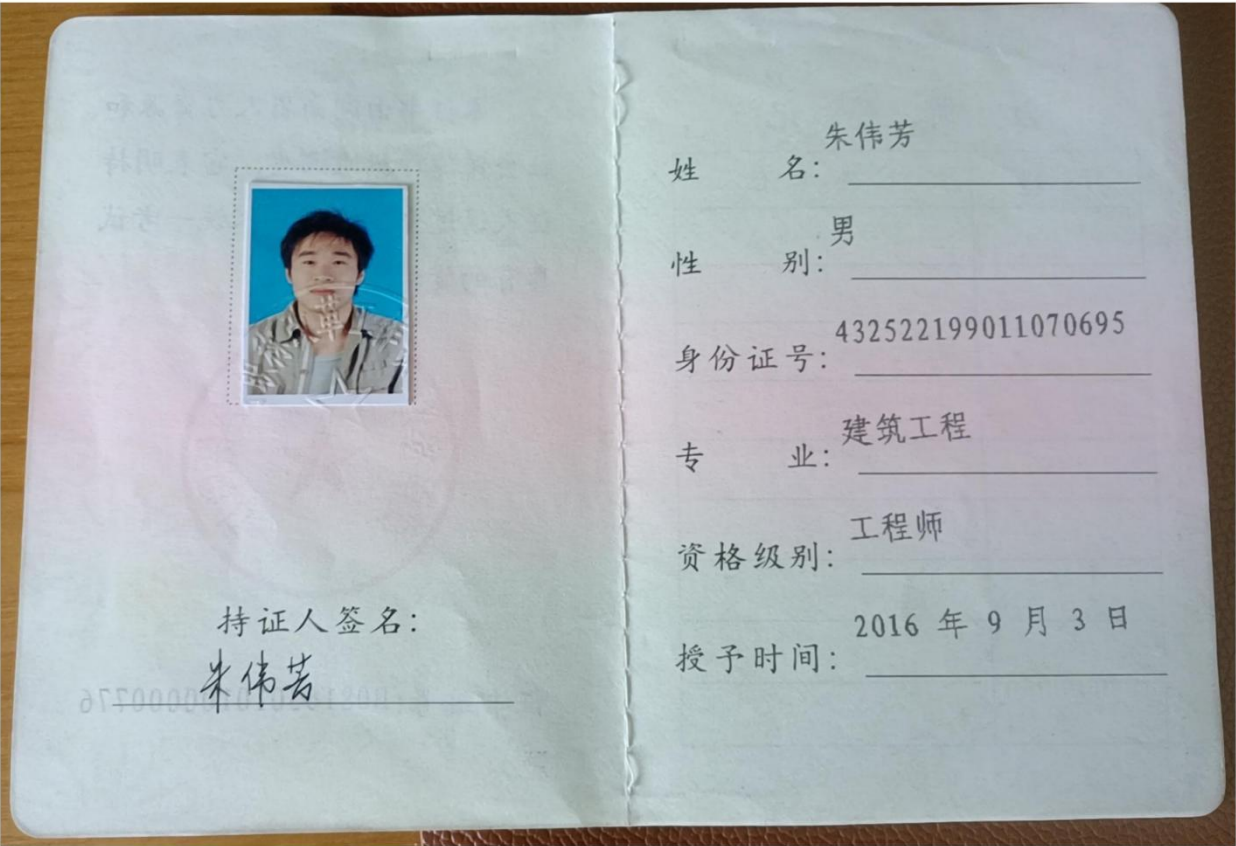 持证人签名：
朱伟芳
姓名：朱伟芳
性别：男
身份证号：432522199011070695
专业：建筑工程
资格级别：工程师
授予时间：2016 年 9 月 3 日